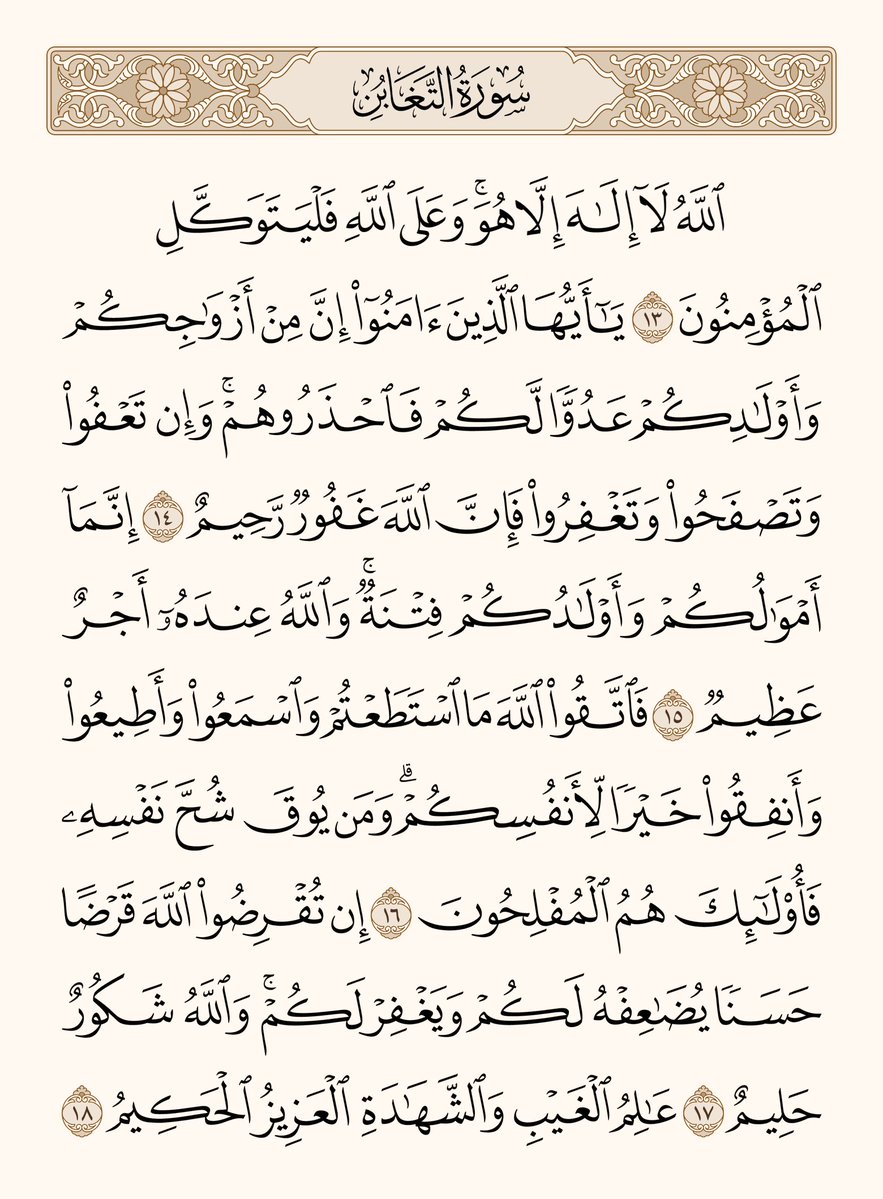 سُورَةُ التَّغَابُنِ
ٱللَّهُ لَآ إِلَـٰهَ إِلَّا هُوَۚ وَعَلَى ٱللَّهِ فَلۡيَتَوَكَّلِ
ٱلۡمُؤۡمِنُونَ ١٣ يَـٰٓأَيُّهَا ٱلَّذِينَ ءَامَنُوٓاْ إِنَّ مِنۡ أَزۡوَٰجِكُمۡ
وَأَوۡلَٰدِكُمۡ عَدُوّٗا لَّكُمۡ فَٱحۡذَرُوهُمۡۚ وَإِن تَعۡفُواْ
وَتَصۡفَحُواْ وَتَغۡفِرُواْ فَإِنَّ ٱللَّهَ غَفُورٞ رَّحِيمٌ ١٤ إِنَّمَآ
أَمۡوَٰلُكُمۡ وَأَوۡلَٰدُكُمۡ فِتۡنَةٞۚ وَٱللَّهُ عِندَهُۥٓ أَجۡرٌ
عَظِيمٞ ١٥ فَٱتَّقُواْ ٱللَّهَ مَا ٱسۡتَطَعۡتُمۡ وَٱسۡمَعُواْ وَأَطِيعُواْ
وَأَنفِقُواْ خَيۡرٗا لِّأَنفُسِكُمۡۗ وَمَن يُوقَ شُحَّ نَفۡسِهِۦ
فَأُوْلَـٰٓئِكَ هُمُ ٱلۡمُفۡلِحُونَ ١٦ إِن تُقۡرِضُواْ ٱللَّهَ قَرۡضًا
حَسَنٗا يُضَٰعِفۡهُ لَكُمۡ وَيَغۡفِرۡ لَكُمۡۚ وَٱللَّهُ شَكُورٌ
حَلِيمٌ ١٧ عَٰلِمُ ٱلۡغَيۡبِ وَٱلشَّهَٰدَةِ ٱلۡعَزِيزُ ٱلۡحَكِيمُ ١٨